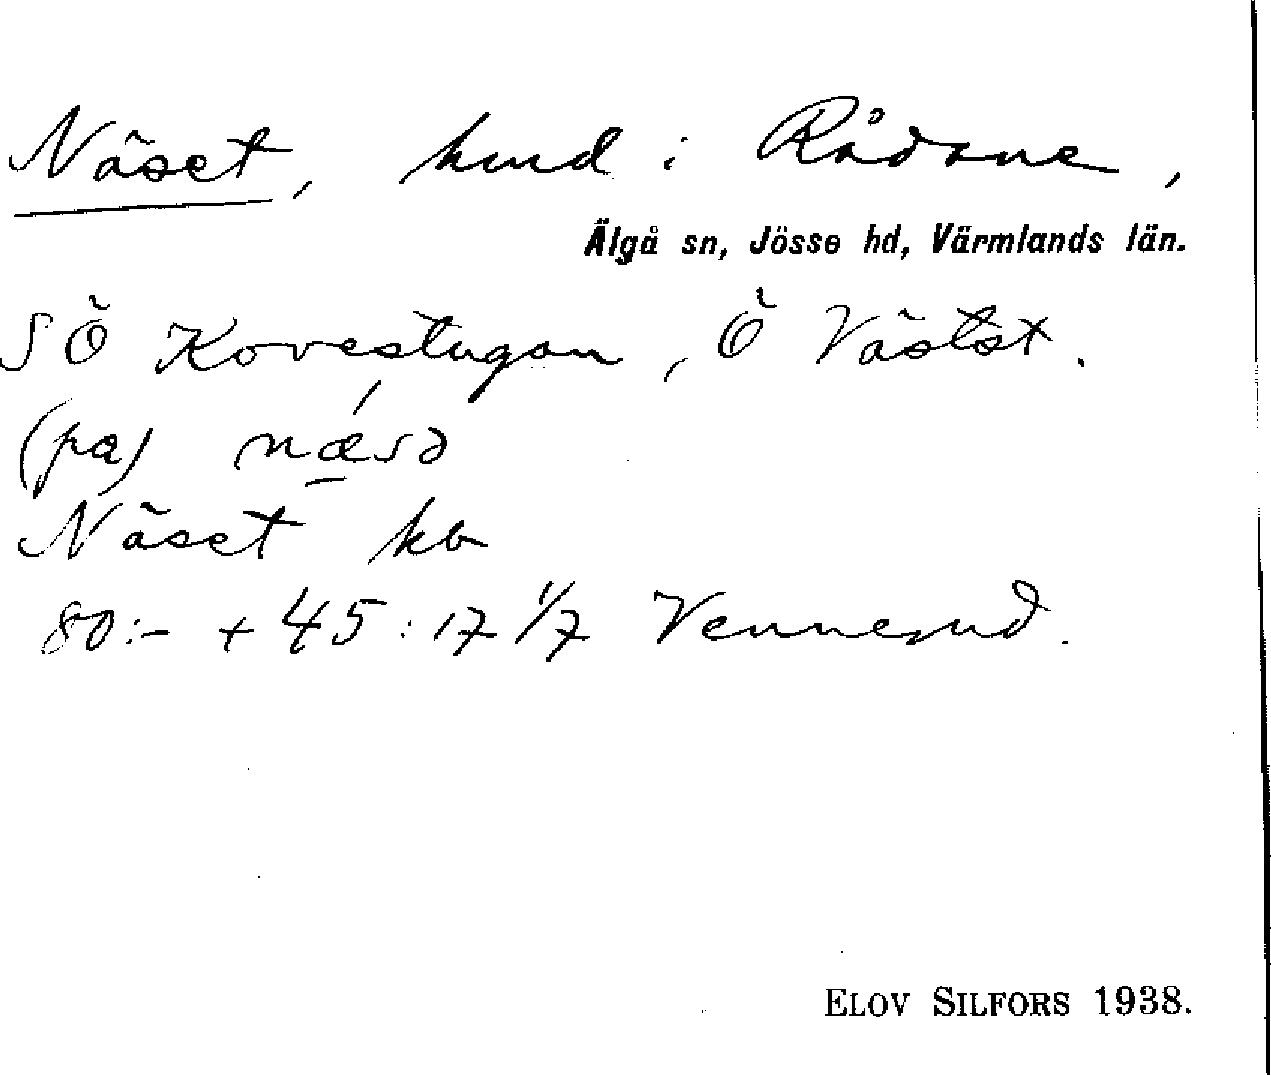 Näset, hmd i Rådane,
Älgå sn, Jösse hd, Värmlands län.
SÖ Kovestugan, Ö Västst.
(pa) næsə
Näset kb
80:- + 45:17 1/7 Vennerud.
ELOV SILFORS 1938.